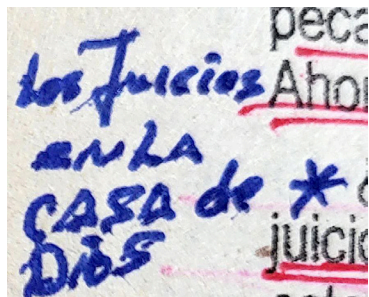 Los Juicios
EN LA
CASA de *
DIOS
peca
Ahor
juicio